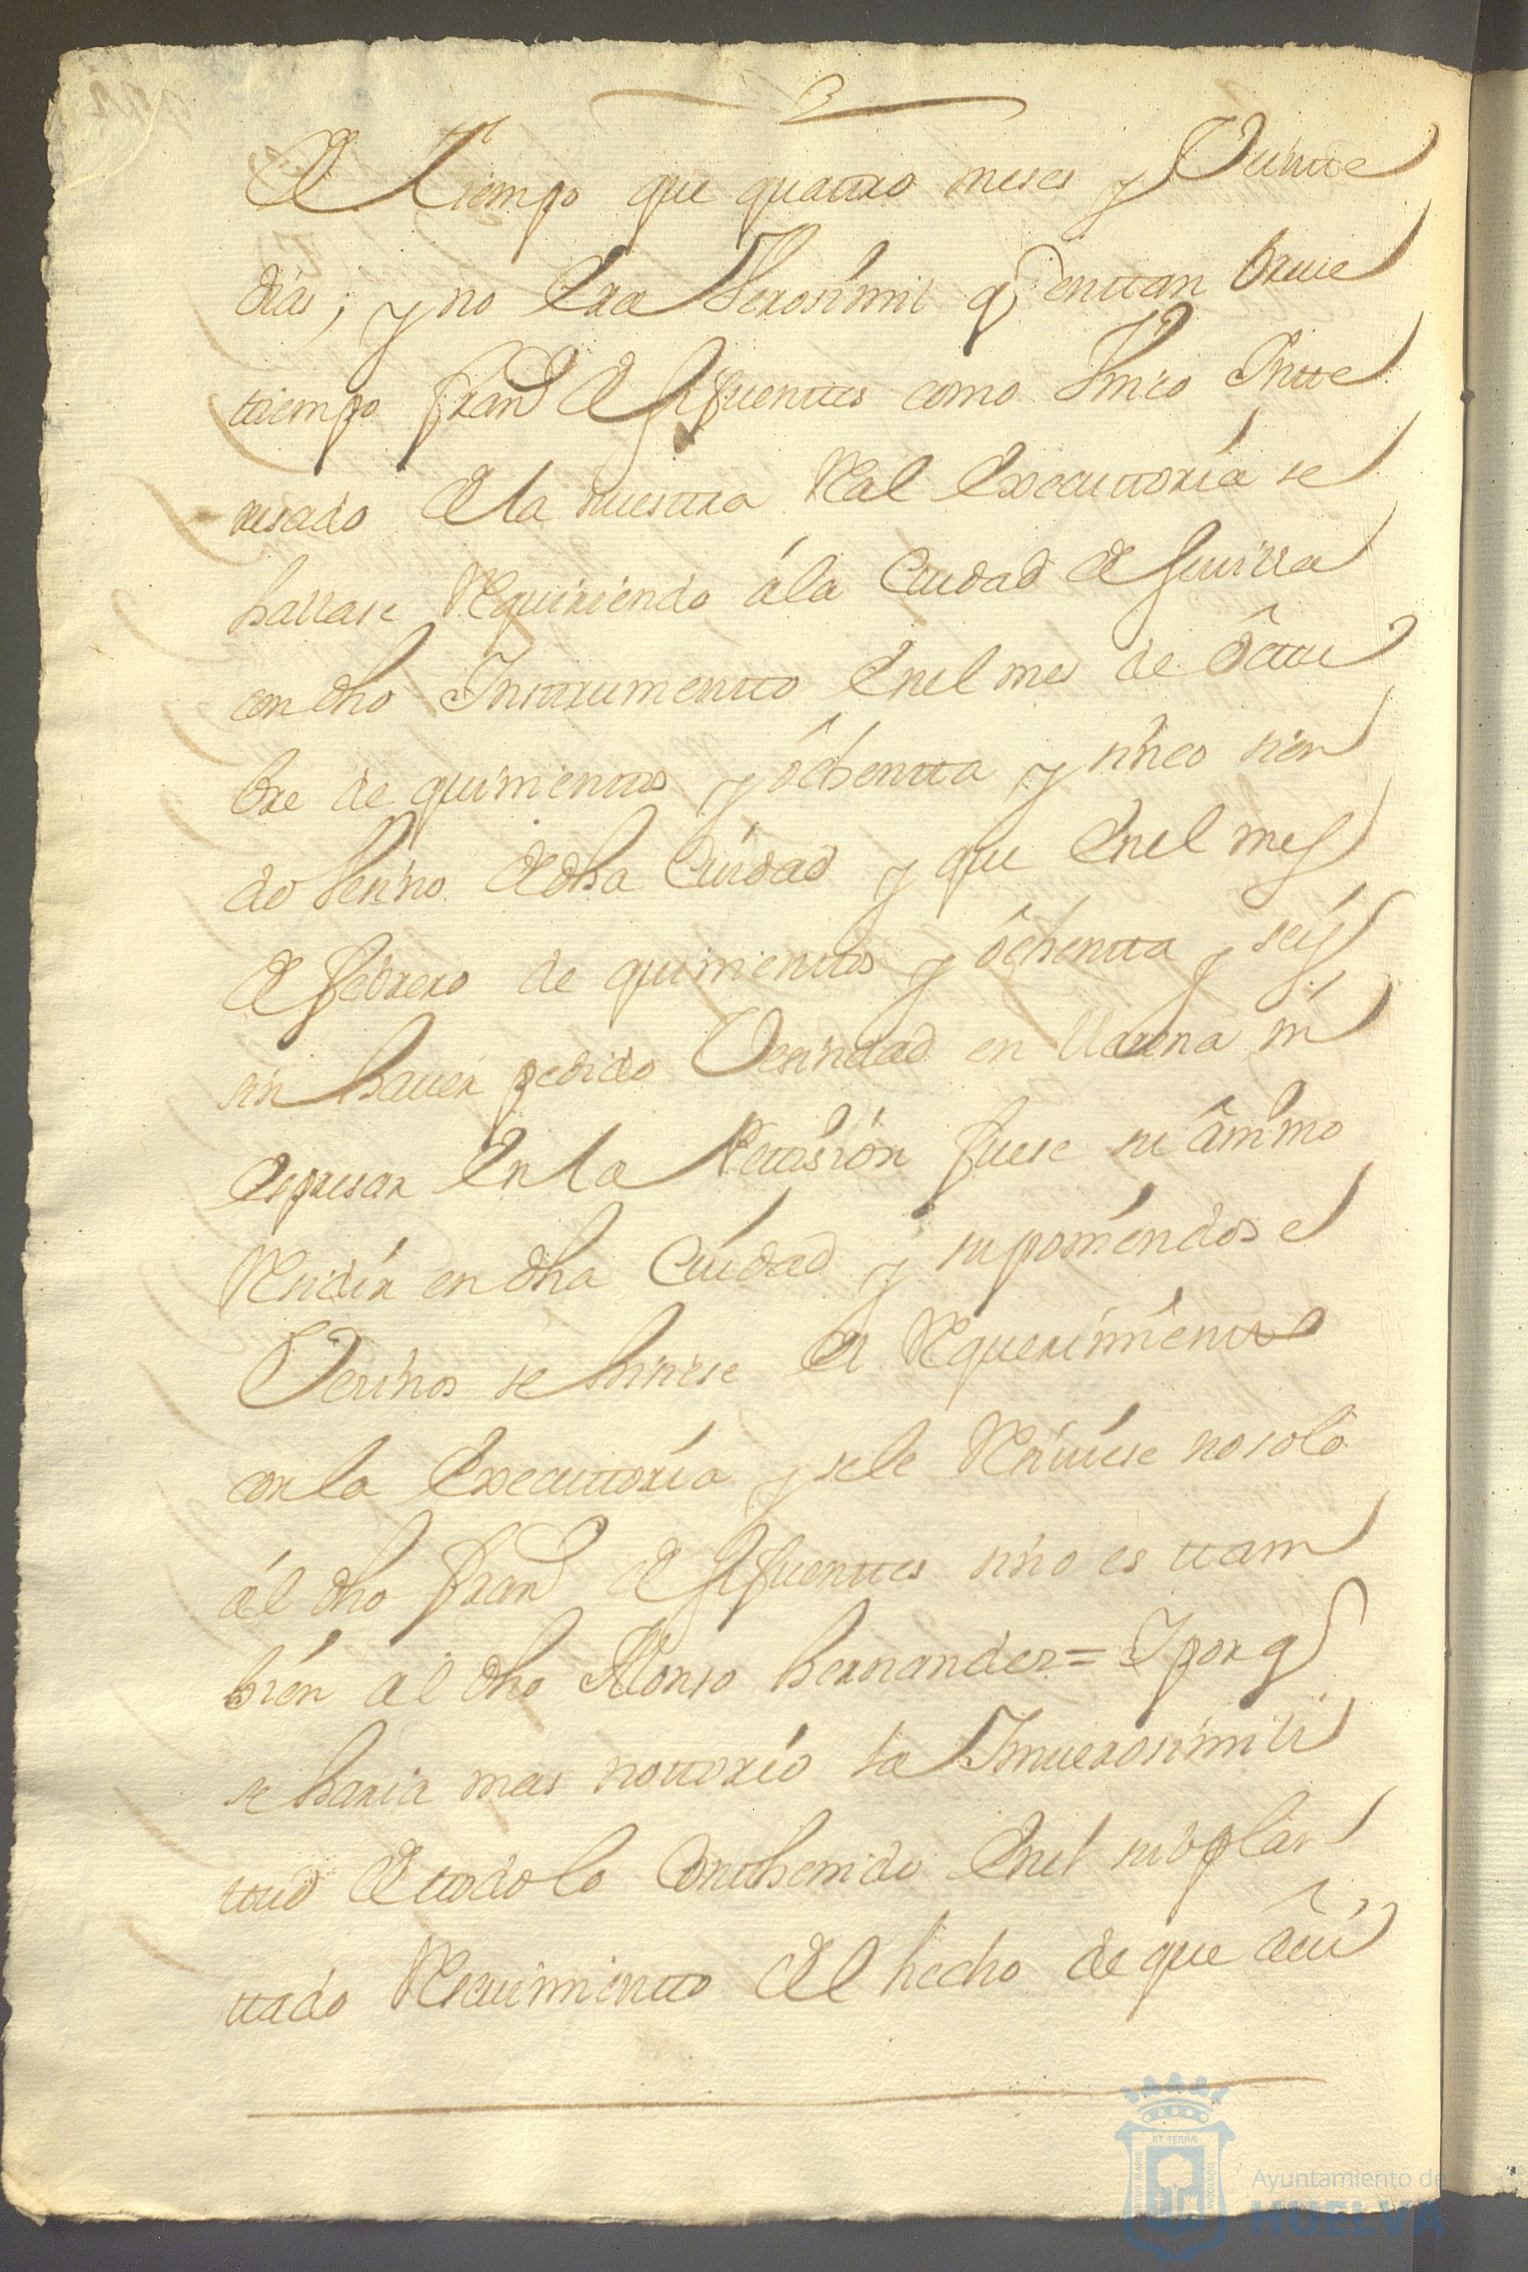 de Tiempo que quattro meses y Veintte
dias; y no Era Verosimil q̃ enttan breue
ttiempo Fran.co de Sifuenttes como Vnico Intte
resado de la nuestra Real Executtoria se
hallase Requiriendo á la Ciudad de Seuilla
con dho Insttrumentto Enel mes de Octtu
bre de quinientos y ôchentta y sinco sien
do Vesino de dha Ciudad y que Enel mes
de Febrero de quinientos y ôchentta y seis
sin hauer pedido Vesindad en Llerena ni
Espresar En la Petision fuese su ânimo
Residir en dha Ciudad y suponiéndose
Vesinos se hisiese El Requerimientto
con la Executtoría y sele Resiuiese no solo
ál dho Fran.co de Sifuenttes sino es ttam
bién al dho Alonso hernandez = Y porq̃
se haria mas nottorio la Inuerosimili
ttud de ttodo lo Conthenido Enel suplan
ttado Resiuimientto del hecho de que âui
ET TERRÆ
PORTUS MARIS
CUSTODIA
Ayuntamiento de
HUELVA